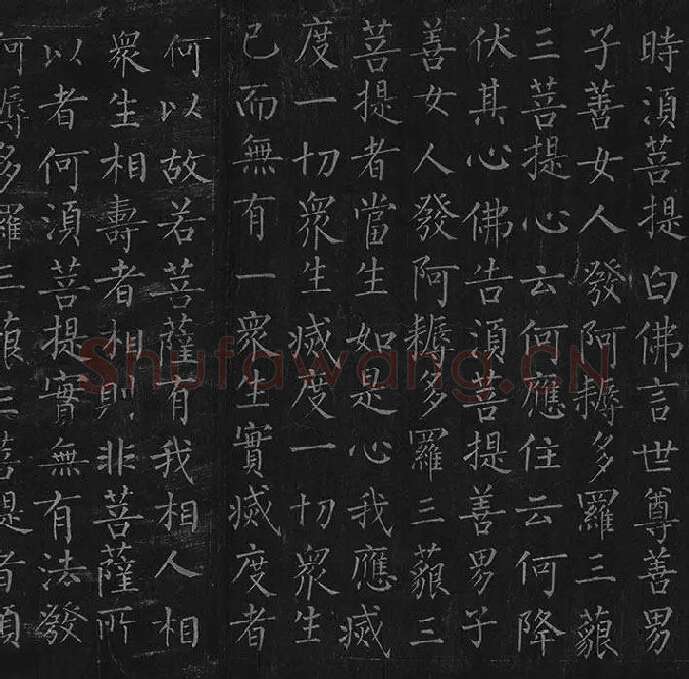 時須菩提白佛言世尊善男
子善女人發阿耨多羅三藐
三菩提心云何應住云何降
伏其心佛告須菩提善男子
善女人發阿耨多羅三藐三
菩提者當生如是心我應滅
度一切衆生滅度一切衆生
已而無有一衆生實滅度者
何以故若菩薩有我相人相
衆生相壽者相則非菩薩所
以者何須菩提實無有法發
阿耨多羅三藐三菩提者須
Shufawang.CN